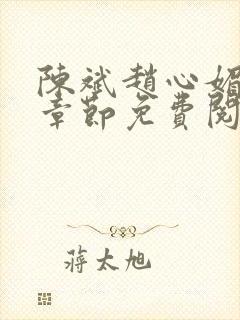 陳斌趙心媚
章節免費閱
蔣太旭